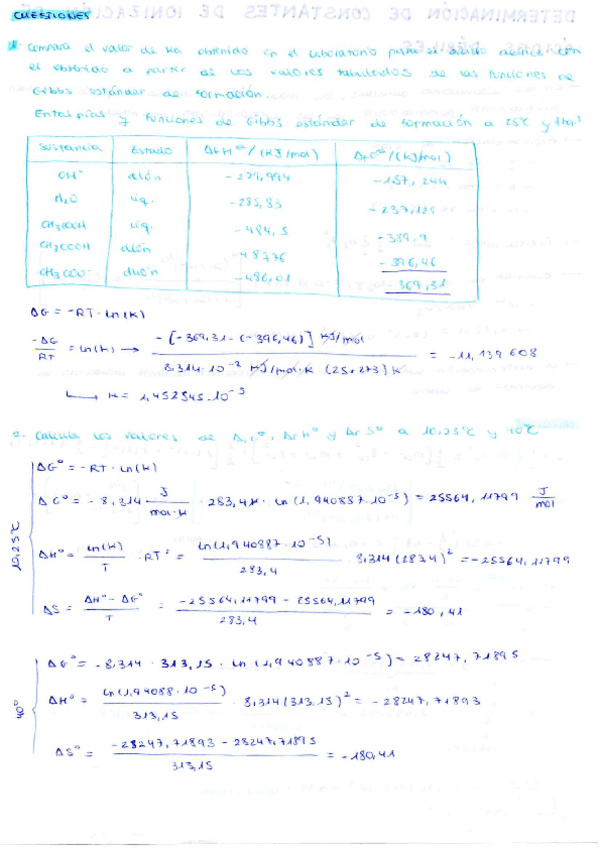 CUESTIONES
1. Compara el valor de Ka obtenido en el laboratorio para el ácido acético con
el obtenido a partir de los valores tabulados de las funciones de
Gibbs estándar de formación.
Entalpías y funciones de Gibbs estándar de formación a 25°C y 1 bar
Sustancia Estado ΔfH°/(KJ/mol) ΔfG°/(KJ/mol)
OH⁻ disión -229,994 -157,244
H₂O líq. -285,83 -237,129
CH₃COOH líq. -484,5 -389,9
CH₃COOH disión -485,76 -396,46
CH₃COO⁻ disión -486,01 -369,31
ΔG = -RT·ln(K)
-ΔG/RT = ln(K) → -[-369,31-(-396,46)] KJ/mol / 8,314·10⁻³ KJ/mol·K (25+273) K = -11,139608
↳ K = 1,452545·10⁻⁵
2- Calcula los valores de ΔrG°, ΔrH° y ΔrS° a 10,25°C y 40°C
10,25°C
ΔG° = -RT·ln(K)
ΔG° = -8,314 J/mol·K · 283,4K · ln(1,940887·10⁻⁵) = 25564,11799 J/mol
ΔH° = ln(K)/T · RT² = ln(1,940887·10⁻⁵)/283,4 · 8,314(283,4)² = -25564,11799
ΔS = ΔH°-ΔG°/T = -25564,11799-25564,11799/283,4 = -180,41
40°
ΔG° = -8,314 · 313,15 · ln(1,940887·10⁻⁵) = 28247,71895
ΔH° = ln(1,94088·10⁻⁵)/313,15 · 8,314(313,15)² = -28247,71893
ΔS° = -28247,71893-28247,71895/313,15 = -180,41